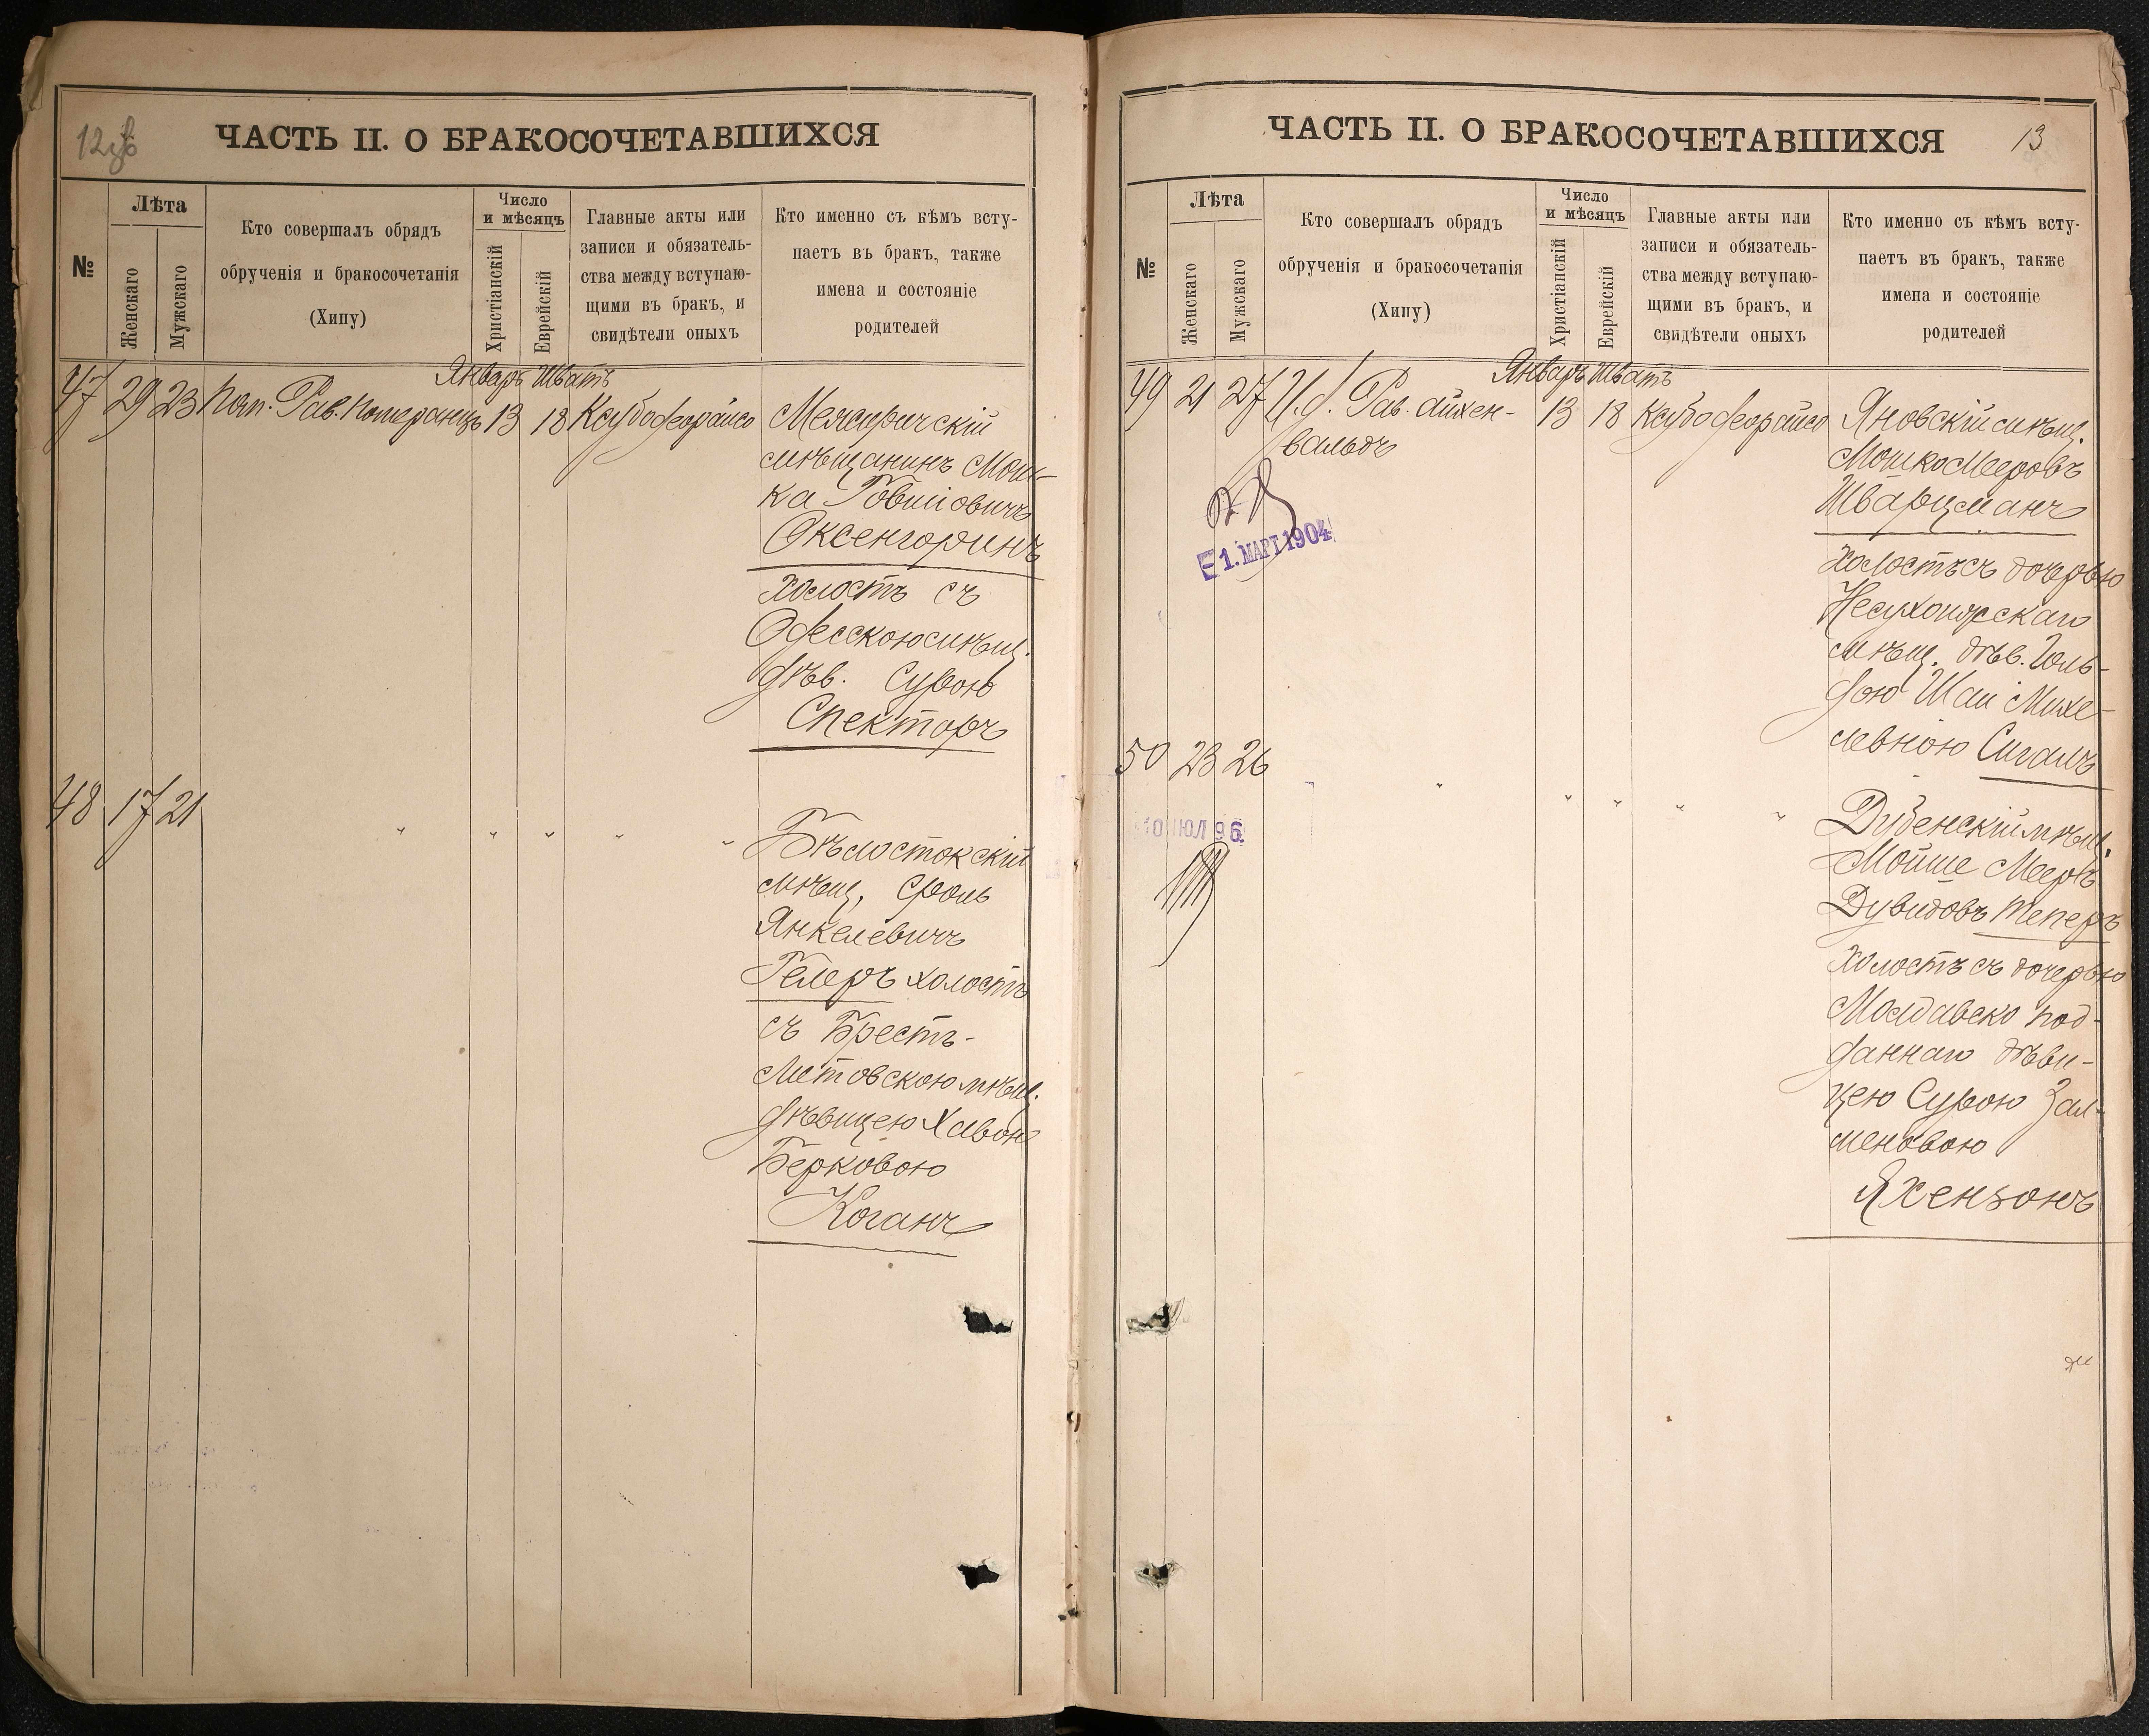 ЧАСТЬ II. О БРАКОСОЧЕТАВШИХСЯ
№
Лѣта
Женскаго
Мужскаго
Кто совершалъ обрядъ
обрученія и бракосочетанія
(Хипу)
Число
и мѣсяцъ
Христіанскій
Еврейскій
Главные акты или
записи и обязатель-
ства между вступаю-
щими въ бракъ, и
свидѣтели оныхъ
Кто именно съ кѣмъ всту-
паетъ въ бракъ, также
имена и состояніе
родителей
Январь Шватъ
47 29 23 Пом. Рав. Померанцъ 13 18
мѣщанинъ Мош-
ка
Оксенгоринъ
холостъ съ
Одесскою мѣщ.
дѣв. Сурою
Спекторъ
48 17 21 " " " " "
Бѣлостокскій
мѣщ. Сроль
Янкелевичъ
Гелеръ холостъ
съ Брестъ-
Литовскою мѣщ.
дѣвицею Хавою
Берковою
Коганъ
ЧАСТЬ II. О БРАКОСОЧЕТАВШИХСЯ
13
№
Лѣта
Женскаго
Мужскаго
Кто совершалъ обрядъ
обрученія и бракосочетанія
(Хипу)
Число
и мѣсяцъ
Христіанскій
Еврейскій
Главные акты или
записи и обязатель-
ства между вступаю-
щими въ бракъ, и
свидѣтели оныхъ
Кто именно съ кѣмъ всту-
паетъ въ бракъ, также
имена и состояніе
родителей
Январь Шватъ
49 21 27 И. д. Рав. Айхен- 13 18 Яновскій мѣщ.
вальдъ
Мошко Мееровъ
Шварцманъ
1. МАРТ 1904
холостъ съ дочерью
мѣщ. дѣв. Голь-
дою Шаи Михе-
левною Сигалъ
50 23 26 " " " " "
10 ИЮЛ 96.
Дубенскій мѣщ.
Мойше Мееръ
Дувидовъ Теперъ
холостъ съ дочерью
Молдавско под-
даннаго дѣви-
цею Сурою Зал-
меновою
Яхензонъ